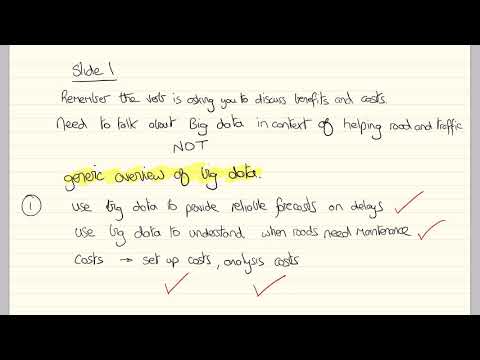 Slide 1
Remember the verb is asking you to discuss benefits and costs.
Need to talk about Big data in context of helping road and traffic
NOT
generic overview of big data.
1 use big data to provide reliable forecasts on delays
use big data to understand when roads need maintenance
Costs → set up costs, analysis costs